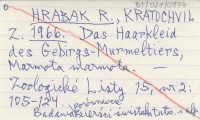 HRABAK R., KRATOCHVIL
Z. 1966. Das Haarkleid
des Gebirgs-Murmeltiers,
Marmota marmota. —
Zoologické Listy 15, nr 2:
105-124
Badania sierści świstaka